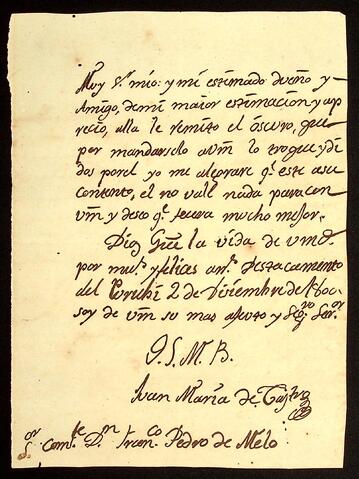 Muy Sr. mio: y mi estimado dueño y
Amigo, de mi maior estimacion y ap
recio, alla le remito el oscuro, que
por mandarselo a vm lo troque
dos por el yo me alegrare qe. este a su
contento, el no vall nada para con
vm y deseo qe. fuera mucho mejor.
Dios Gue la vida de vmd.
por ms. y felices ans. Destacamento
del Curichi 2 de Diciembre de 180
soy de vm su mas afecto y Segro. Seror.
Q. S. M. B.
Juan Maria de
Sor. Comte. Dn. Franco. Pedro de Melo